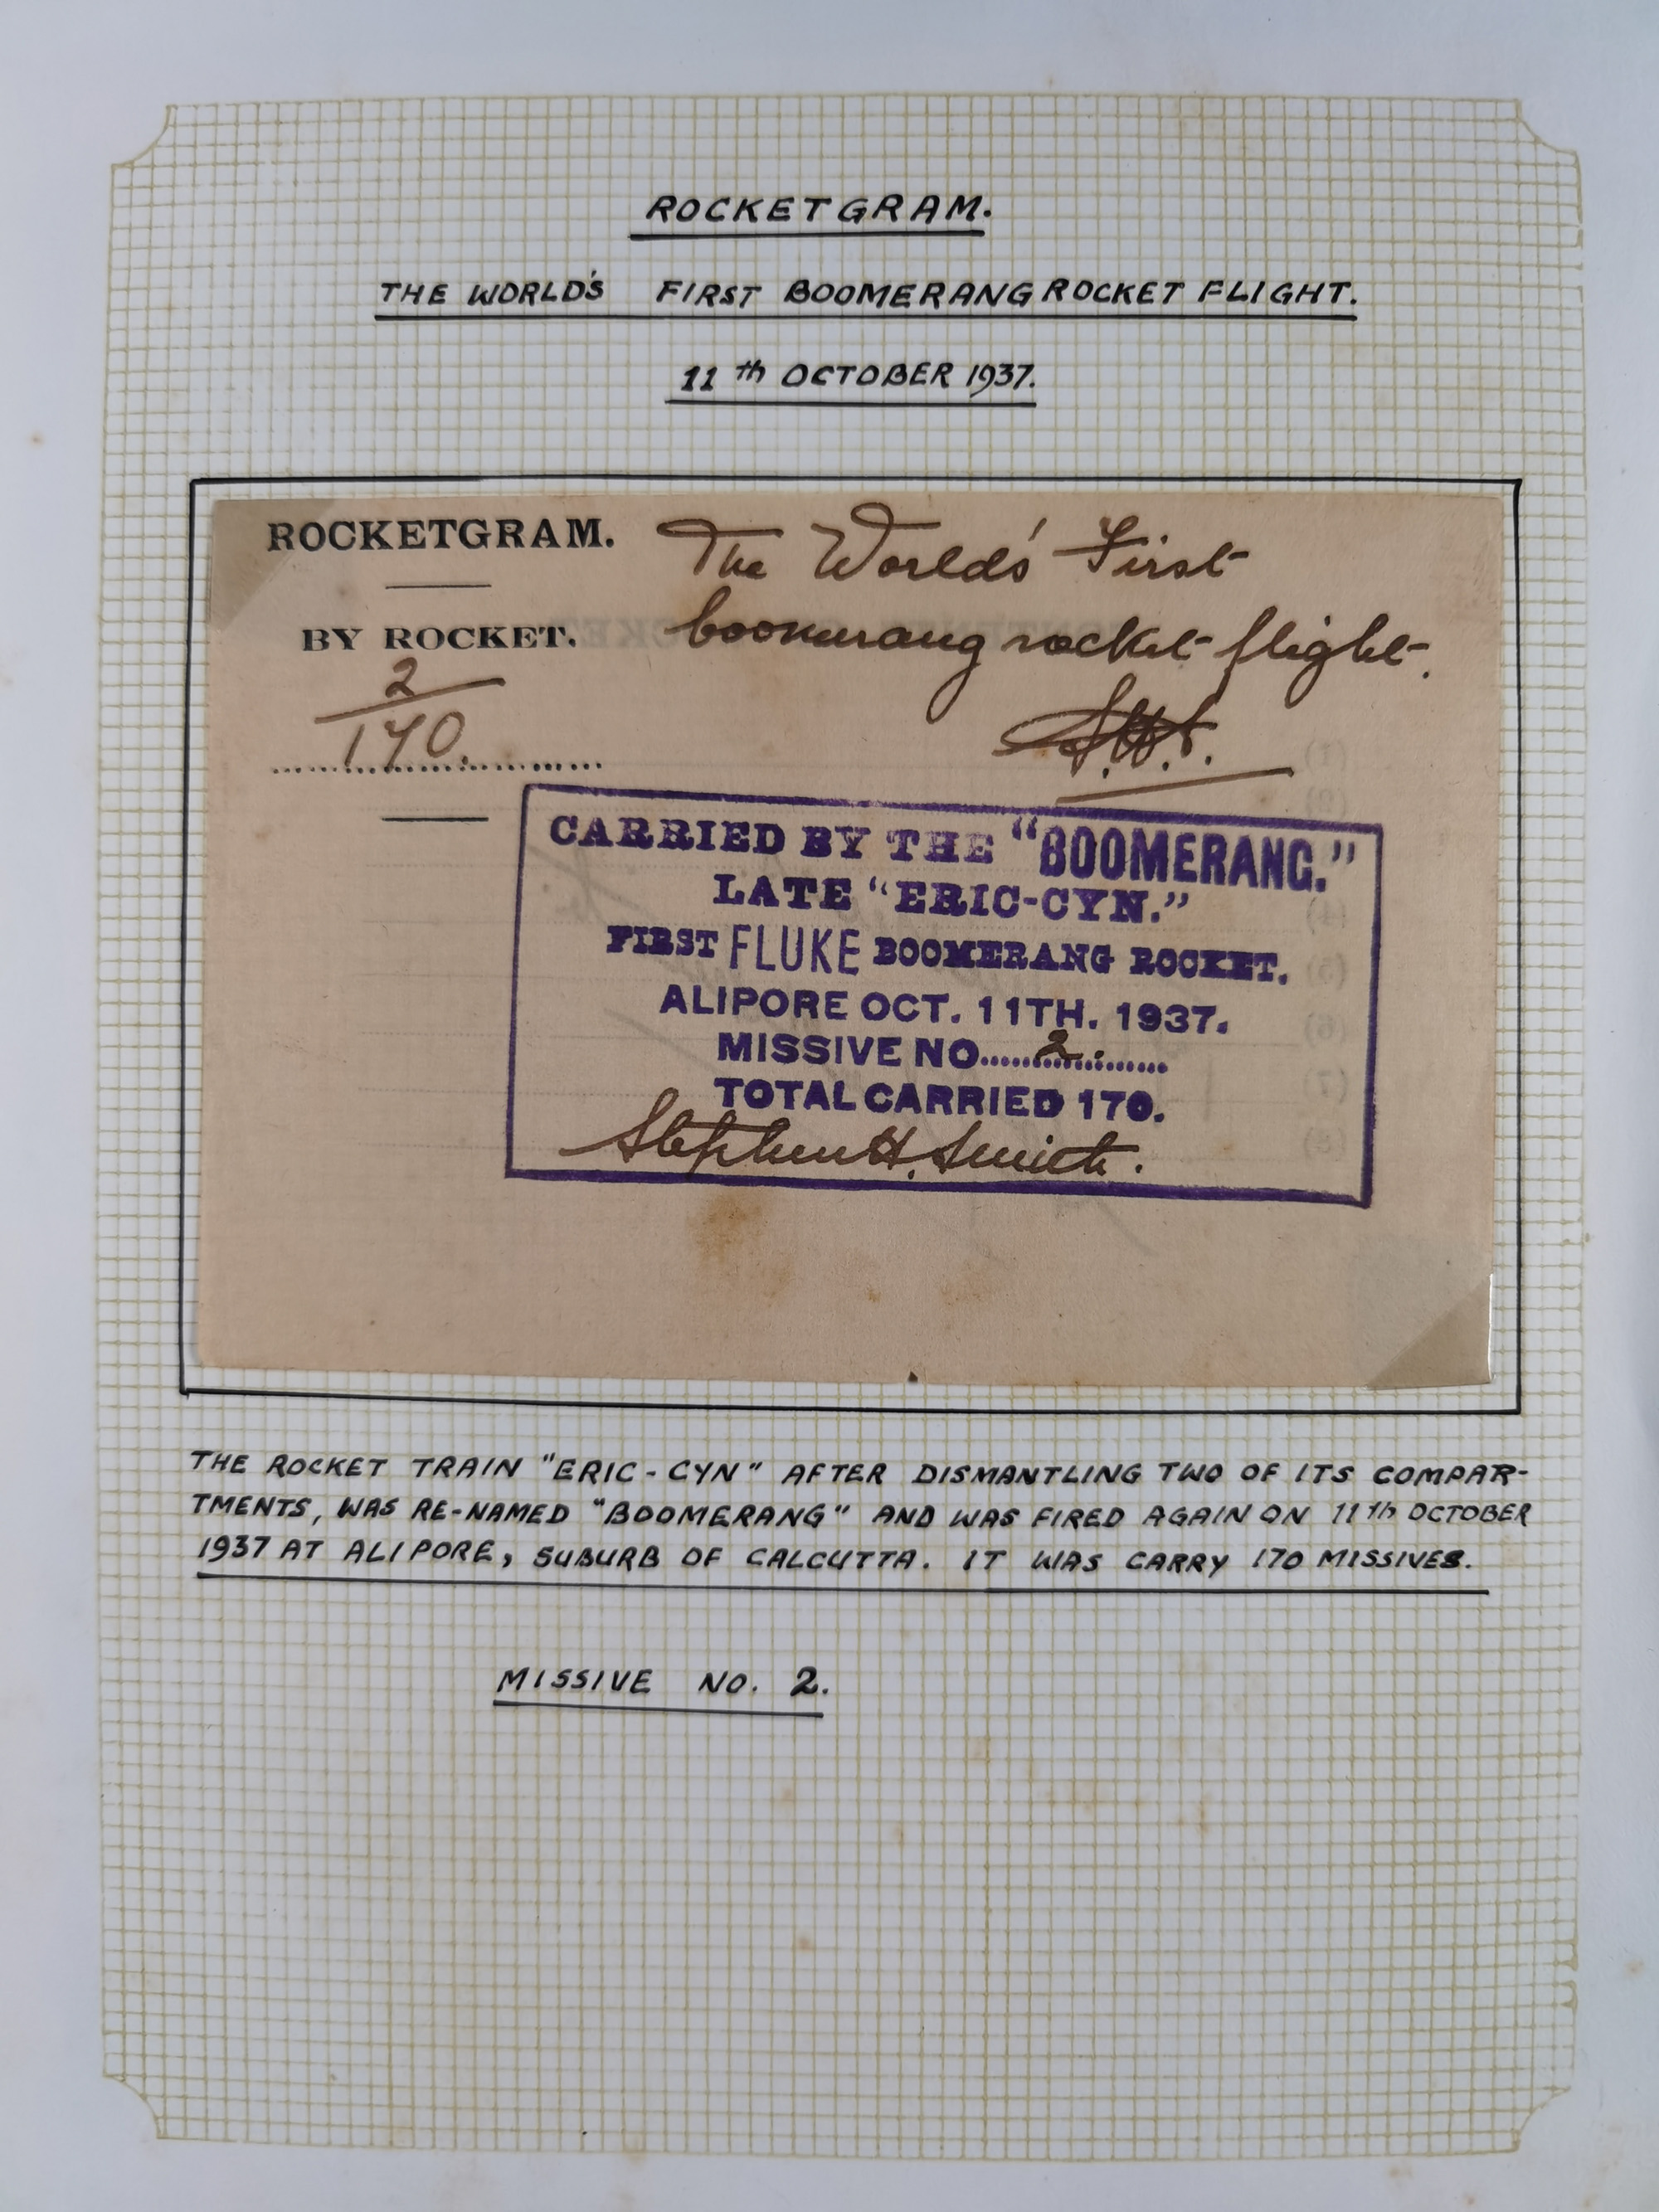 ROCKETGRAM.
THE WORLD'S FIRST BOOMERANG ROCKET FLIGHT.
11th OCTOBER 1937.
ROCKETGRAM.
BY ROCKET.
2
170.
The World's First
boomerang rocket flight.
S.H.S.
CARRIED BY THE "BOOMERANG."
LATE "ERIC-CYN."
FIRST FLUKE BOOMERANG ROCKET.
ALIPORE OCT. 11TH. 1937.
MISSIVE NO......2.......
TOTAL CARRIED 170.
Stephen H. Smith.
THE ROCKET TRAIN "ERIC-CYN" AFTER DISMANTLING TWO OF ITS COMPAR-
TMENTS, WAS RE-NAMED "BOOMERANG" AND WAS FIRED AGAIN ON 11th OCTOBER
1937 AT ALIPORE, SUBURB OF CALCUTTA. IT WAS CARRY 170 MISSIVES.
MISSIVE NO. 2.